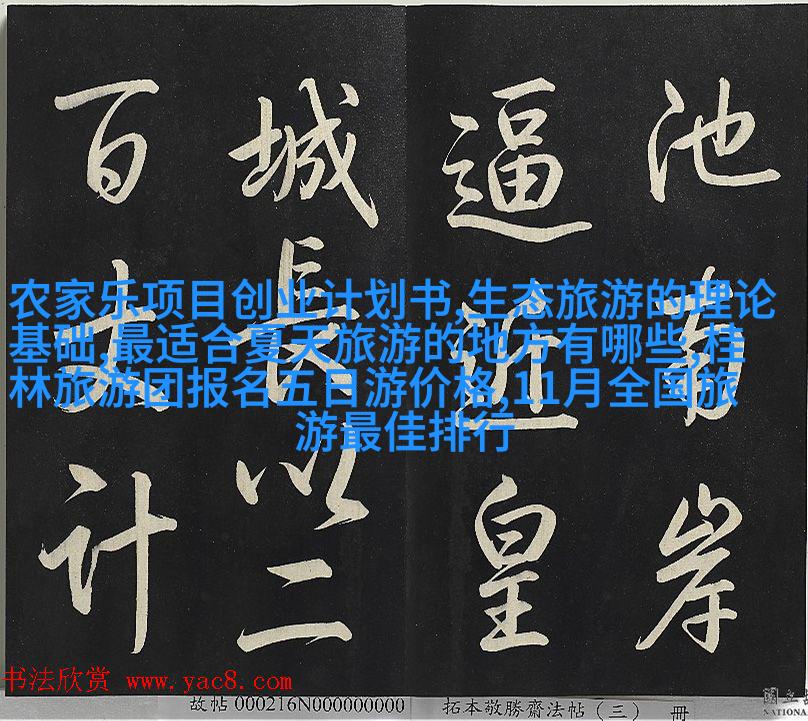 池南岸
逼近皇
城長以二
百丈計
农家乐项目创业计划书,生态旅游的理论
基础,最适合夏天旅游的地方有哪些,桂
林旅游团报名五日游价格,11月全国旅
游最佳排行
书法欣赏 www.yac8.com
故帖 000216N000000000
拓本敬勝齋法帖（三） 冊
國立
NATIONA